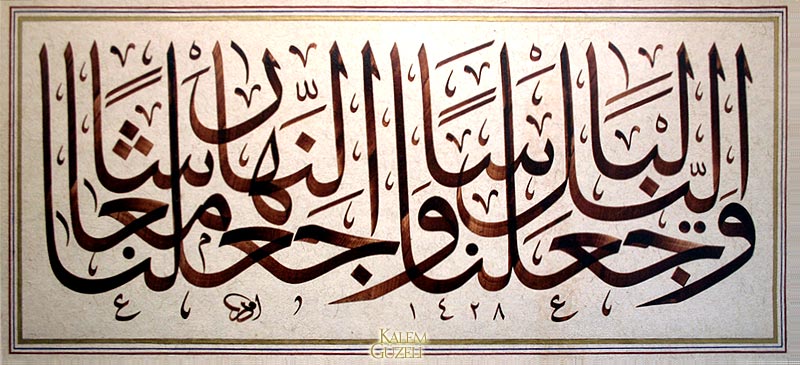 وجعلنا الليل لباسا وجعلنا النهار معاشا
١٤٢٨
KALEM
GÜZELİ